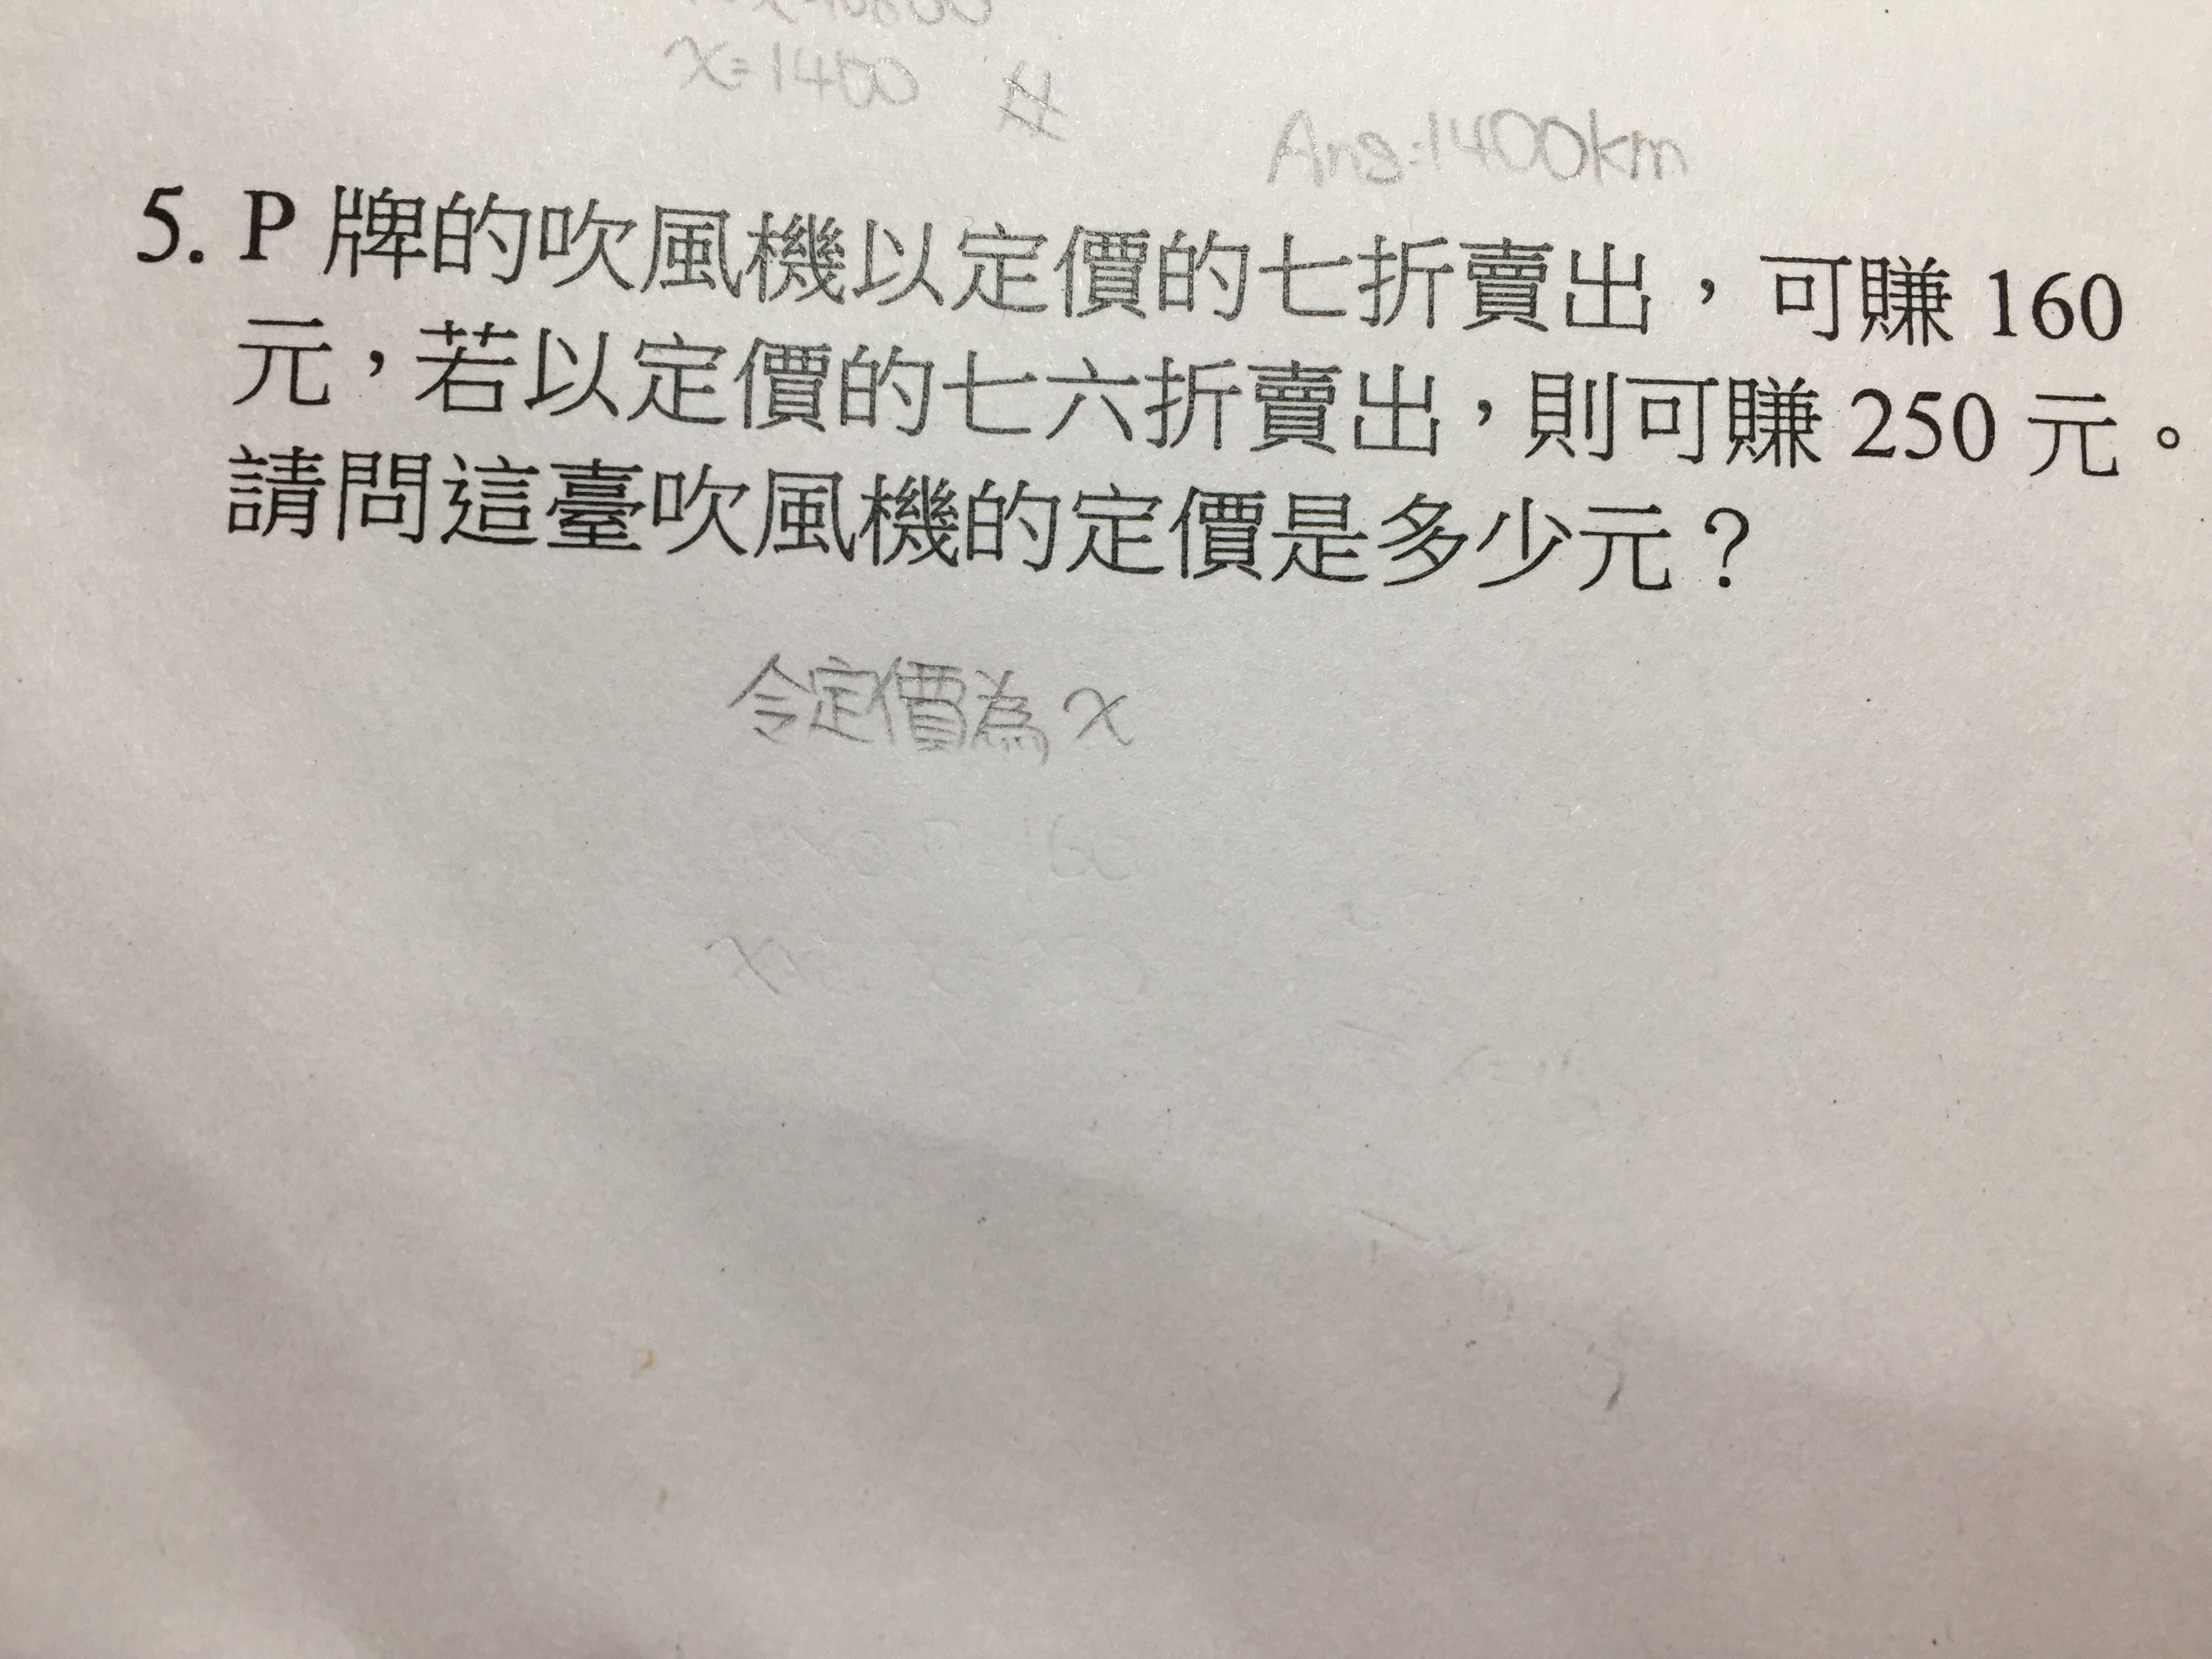 x=1400 #
Ans:1400km
5. P 牌的吹風機以定價的七折賣出，可賺 160
元，若以定價的七六折賣出，則可賺 250 元。
請問這臺吹風機的定價是多少元？
令定價為 x